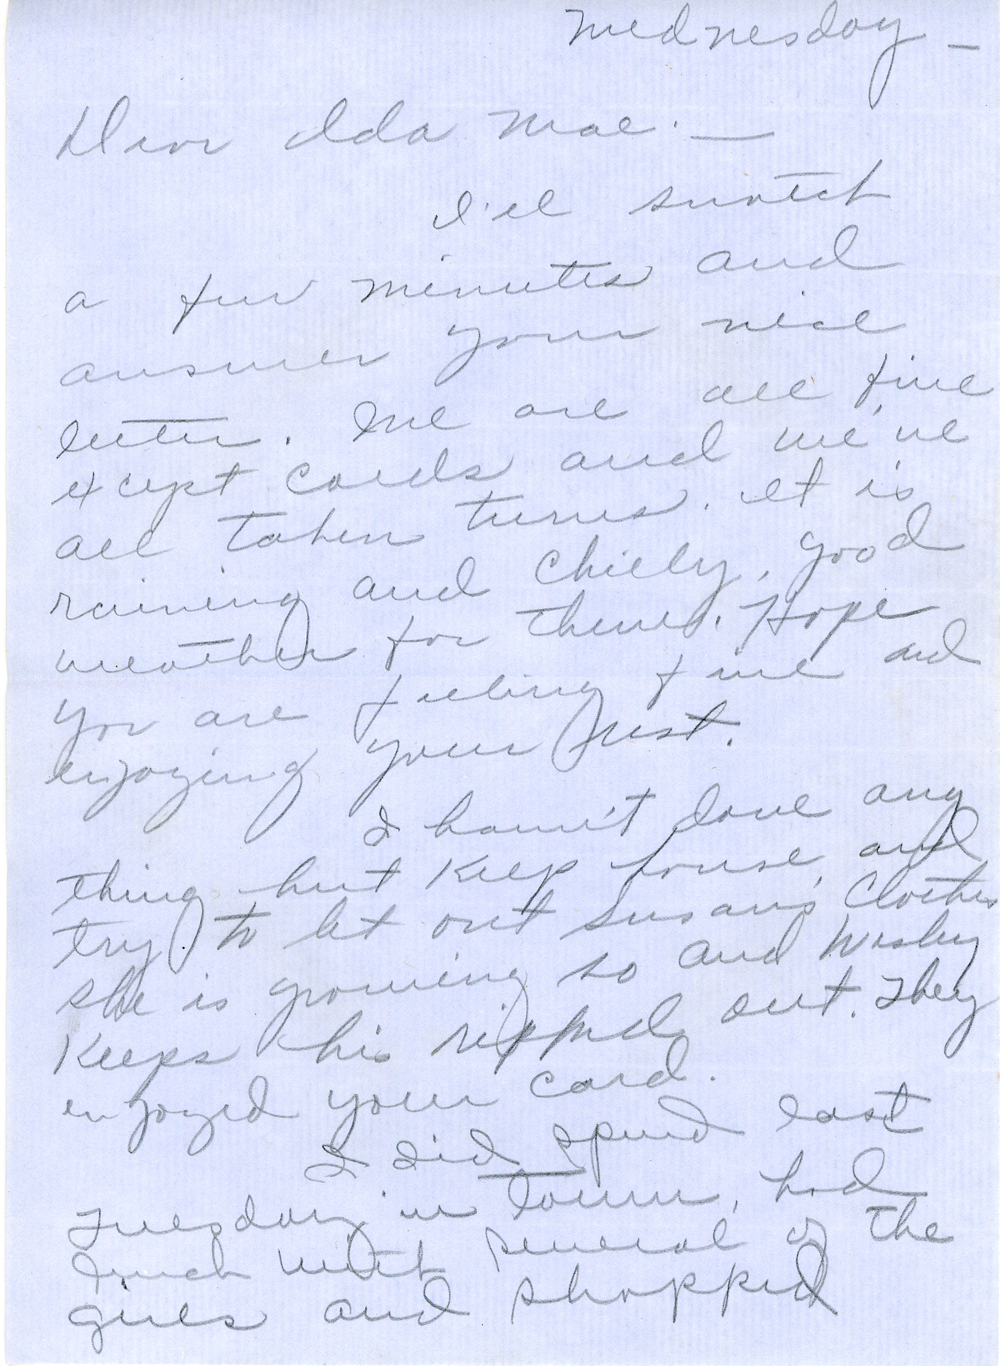 Wednesday —
Dear Ida Mae. —
I'll snatch
a few minutes and
answer your nice
letter. We are all fine
except colds and we've
all taken turns. It is
raining and chilly, good
weather for them. Hope
you are feeling fine and
enjoying your rest.
I haven't done any
thing but keep house, and
try to let out Susan's clothes
she is growing so and Wesley
keeps his ripped out. They
enjoyed your card.
I did spend last
Tuesday in town, had
lunch with several of the
girls and shopped